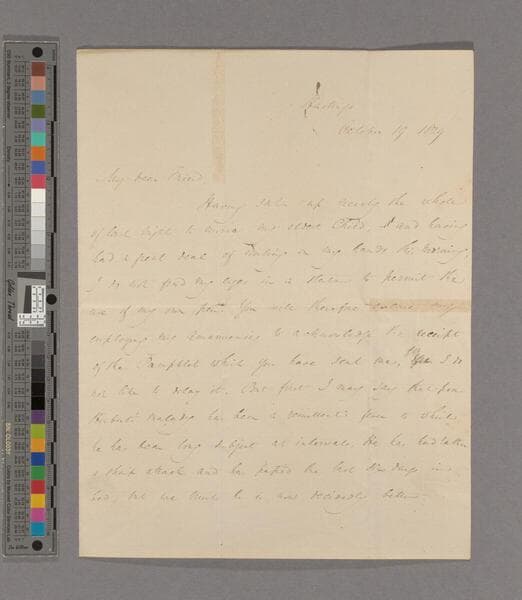 Hastings
October 19 1829
My dear Friend
Having sat up nearly the whole
of last night to nurse my eldest Child, and having
had a great deal of writing in my hands this morning,
I do not find my eyes in a state to permit the
use of my own pen. You will therefore excuse my
employing my amanuensis to acknowledge the receipt
of the Pamphlet which you have sent me, as I do
not like to delay it. But first I may say that poor
malady has been a remittent fever to which
he has been long subject at intervals. He has had
a sharp attack and has passed the last days in
bed, but we think he is now decidedly better.